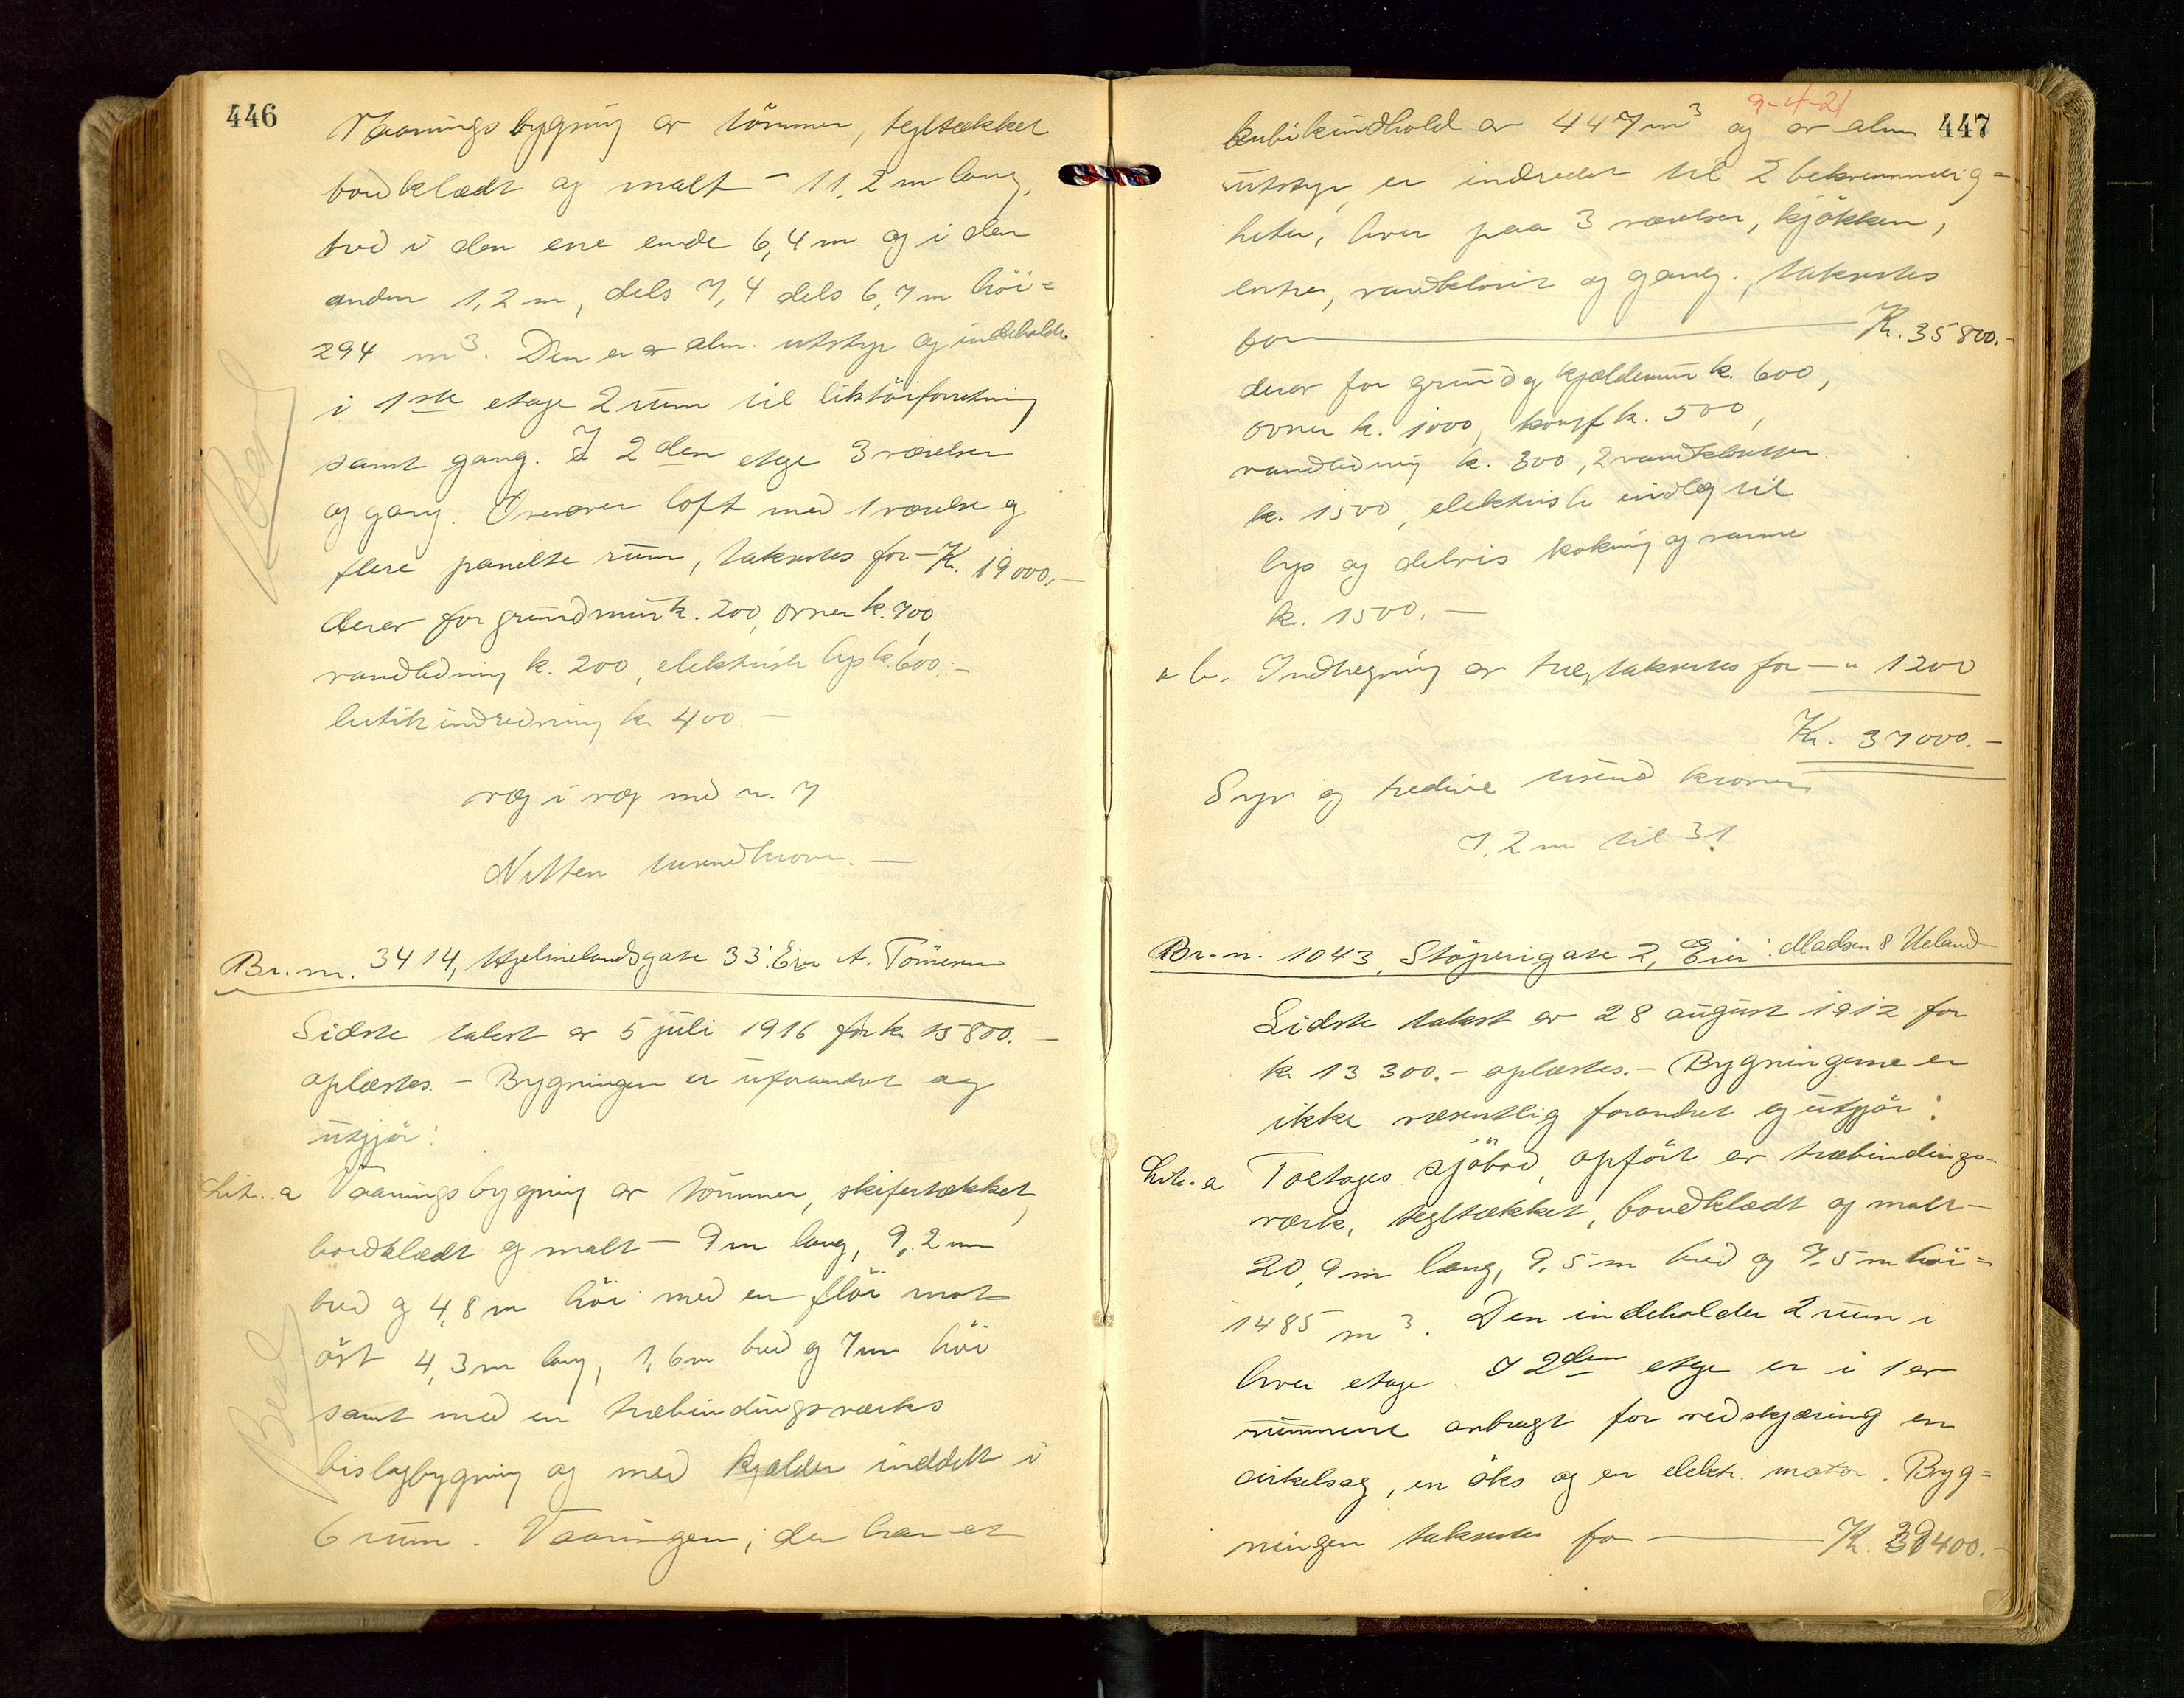 446
Vaaningsbygning av tömmer, tegltækket
bordklædt og malt - 11,2 m lang,
bred i den ene ende 6,4 m og i den
anden 1,2 m, dels 7,4 dels 6,7 m höi =
294 m³. Den er av alm. utstyr og indeholder
i 1ste etage 2 rum til
samt gang. I 2den etage 3 værelser
og gang. Ovenover loft med 1 værelse og
flere panelte rum, takseres for - Kr. 19000,-
derav for grundmur k. 200, ovner k. 700,
vandledning k. 200, elektrisk lys k. 600.-
butikindredning kr 400.-
væg i væg med n. 7
Nitten tusend kroner.-
Br. nr. 3414, Hjelmelandsgate 33. Eier A. Tönnesen
Sidste takst av 5 juli 1916 for k 15800.-
oplæstes. - Bygningen er uforandret og
utgjör:
Litr. a Vaaningsbygning av tömmer, skifertækket,
bordklædt og malt - 9 m lang, 9,2 m
bred og 4,8 m höi med en flöi mot
öst 4,3 m lang, 1,6 m bred og 7 m höi
samt med en træbindingsverks
bislagbygning og med kjælder inddelt i
6 rum. Vaaningen, der har et
9-4-21
447
kubikindhold av 447 m³ og av alm
utstyr, er indredet til 2 bekvemmelig=
heter, hver paa 3 værelser, kjökken,
entre, vandkloset og gang., takseres
for Kr. 35800.-
derav for grund og kjældermur k. 600,
ovner k. 1000, komf k. 500,
vandledning k. 300, 2 vandklosetter
k. 1500, elektrisk indlæg til
lys og delvis kokning og varme
k. 1500.-
" b. Indhegning av træ, takseres for - " 1200
Kr. 37000.-
Syv og tredive tusend kroner
7,2 m til 31
Br. n. 1043, Stöperigate 2, Eier: Madsen & Ueland
Sidste takst av 28 august 1912 for
k 13300.- oplæstes. - Bygningerne er
ikke væsentlig forandret og utgjör:
Litr. a Toetages sjöbod, opfört av træbindings-
værk, tegltækket, bordklædt og malt -
20,9 m lang, 9,5 m bred og 7,5 m höi =
1485 m³. Den indeholder 2 rum i
hver etage. I 2den etage er i 1 av
rummene anbragt for vedskjæring en
cirkelsag, en öks og en elektr. motor. Byg=
ningen takseres for K. 39400.-